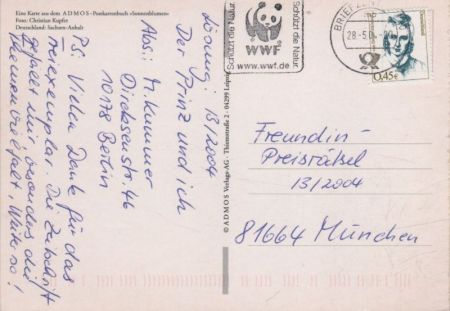 Eine Karte aus dem ADMOS-Postkartenbuch «Sonnenblumen»
Foto: Christian Kupfer
Deutschland: Sachsen-Anhalt
Lösung: 13/2004
Der Prinz und ich
Abs: M. Kummer
Dircksenstr. 46
10178 Berlin
PS: Vielen Dank für das
Freiexemplar. Die Zeitschrift
gefällt mir besonders die
Themenvielfalt, Weiter so!
© ADMOS Verlags-AG · Thiemstraße 2 · 04299 Leipzig
Schützt die Natur.
WWF
www.wwf.de
Schützt die Natur.
BRIEFZEN
28-5.04
0,45€
Freundin-
Preisrätsel
13/2004
81664 München